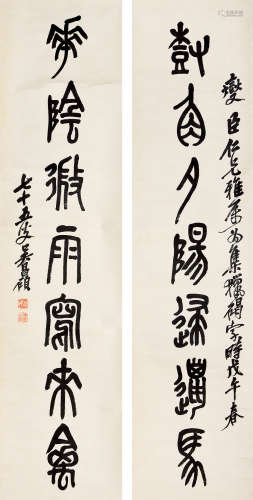 燮臣仁兄雅屬為集獵碣字時戊午春
尌夕陽歸邋馬
華陰微雨寫來禽
七十五叟吳昌碩